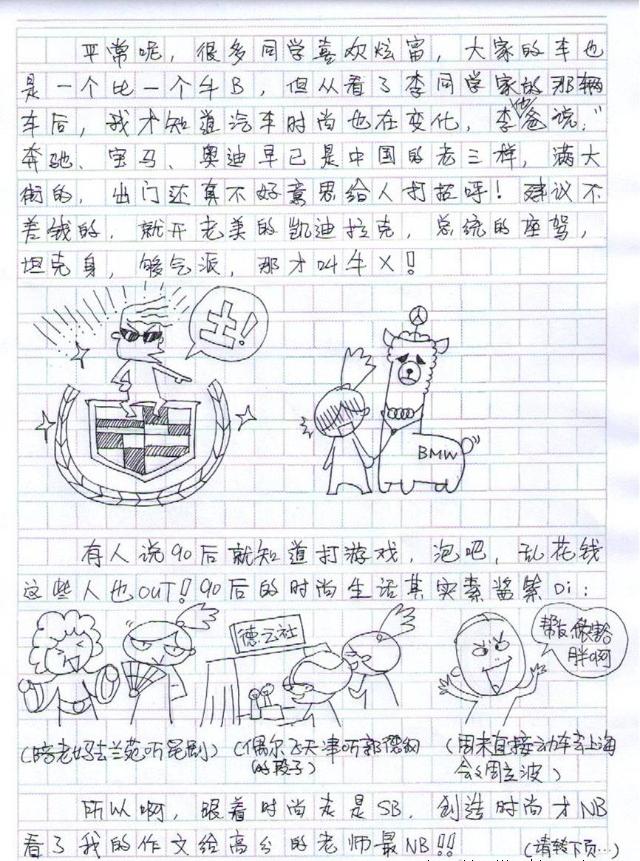 平常呢，很多同学喜欢炫富，大家的车也
是一个比一个牛B，但从看了李同学家的那辆
车后，我才知道汽车时尚也在变化，李他爸说，"
奔驰、宝马、奥迪早已是中国的老三样，满大
街的，出门还真不好意思给人打招呼！建议不
差钱的，就开老美的凯迪拉克，总统的座驾，
坦克身，够气派，那才叫牛X！
土！
BMW
有人说90后就知道打游戏，泡吧，乱花钱
这些人也OUT！90后的时尚生活其实素酱紫Di：
德云社
帮友
胖啊
(陪老妈去兰苑听昆剧)
(偶尔飞天津听郭德纲
的段子)
(周末直接动车去上海
会会周立波)
所以啊，跟着时尚走是SB，创造时尚才NB
看了我的作文给高分的老师最NB!!!
(请转下页…)